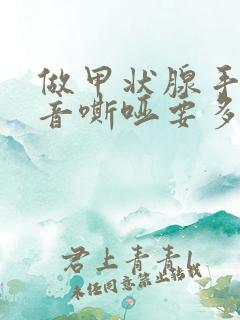 做甲状腺手
音嘶哑要多
君上青青l
未任同意禁止转载